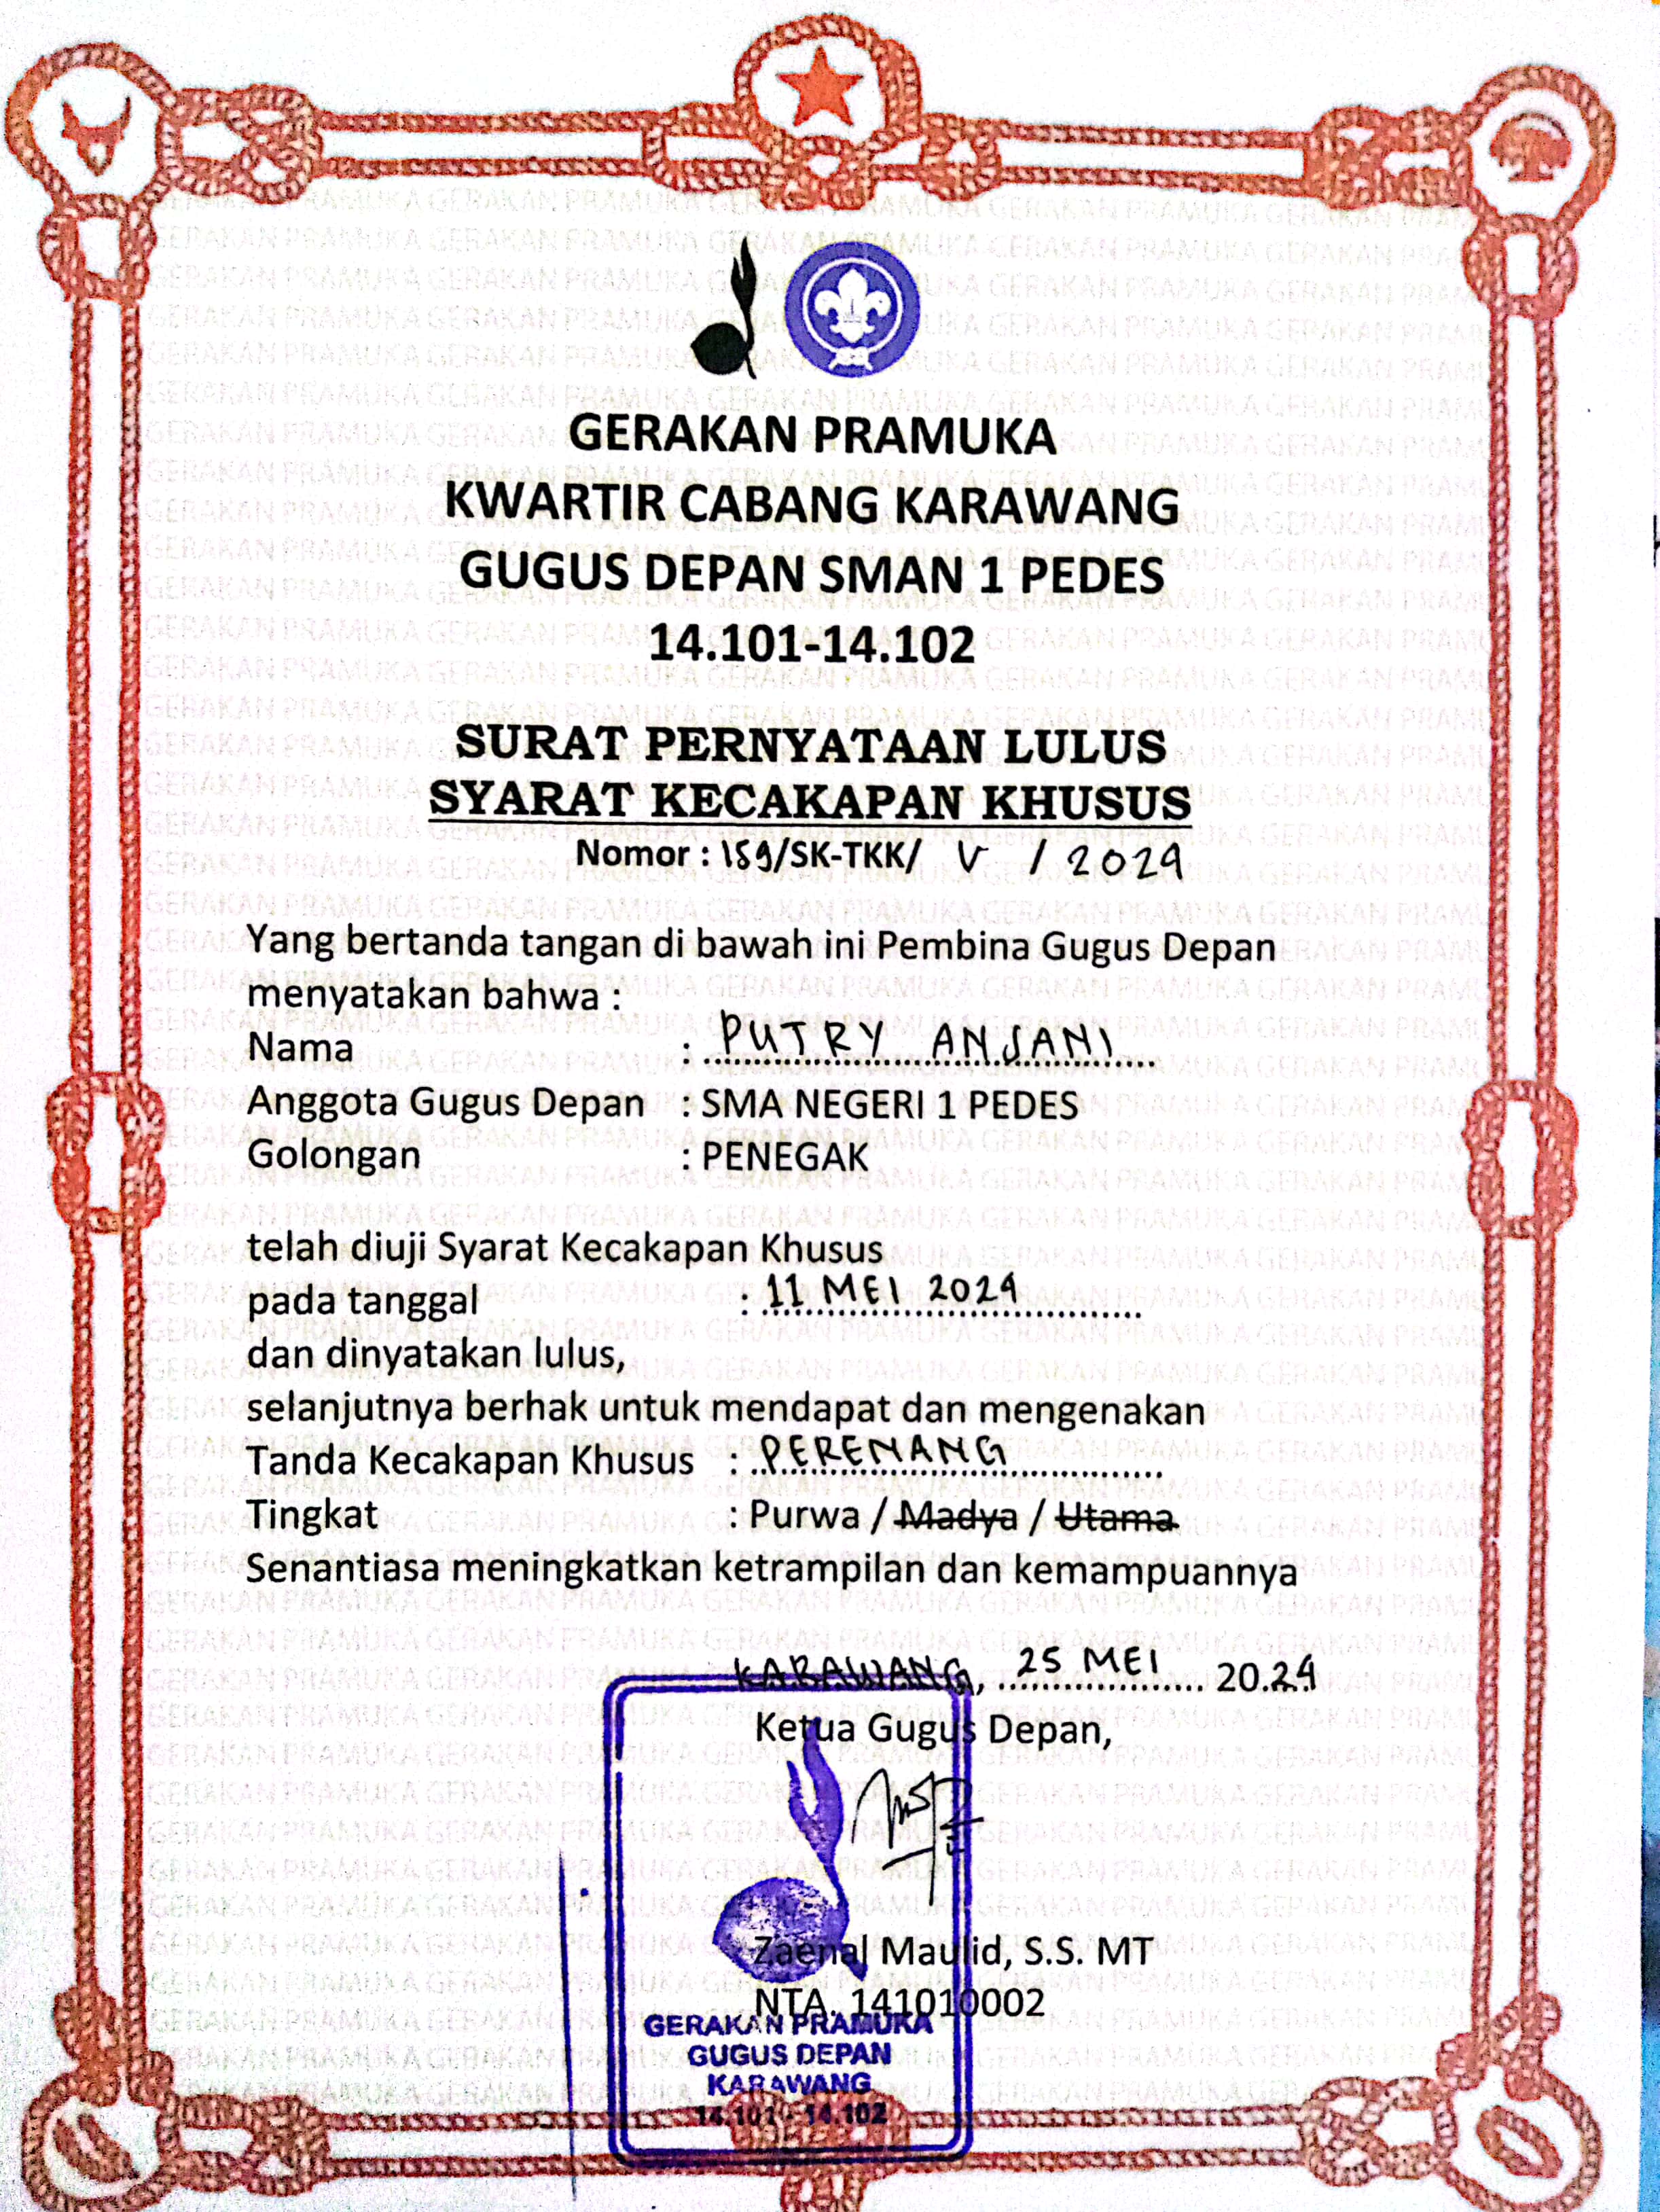 GERAKAN PRAMUKA
KWARTIR CABANG KARAWANG
GUGUS DEPAN SMAN 1 PEDES
14.101-14.102
SURAT PERNYATAAN LULUS
SYARAT KECAKAPAN KHUSUS
Nomor : 159/SK-TKK/ V / 2024
Yang bertanda tangan di bawah ini Pembina Gugus Depan
menyatakan bahwa :
Nama : PUTRY ANJANI
Anggota Gugus Depan : SMA NEGERI 1 PEDES
Golongan : PENEGAK
telah diuji Syarat Kecakapan Khusus
pada tanggal : 11 MEI 2024
dan dinyatakan lulus,
selanjutnya berhak untuk mendapat dan mengenakan
Tanda Kecakapan Khusus : PERENANG
Tingkat : Purwa / Madya / Utama
Senantiasa meningkatkan ketrampilan dan kemampuannya
KARAWANG, 25 MEI 2024
Ketua Gugus Depan,
Zaenal Maulid, S.S. MT
NTA. 141010002
GERAKAN PRAMUKA
GUGUS DEPAN
KARAWANG
14.101 - 14.102